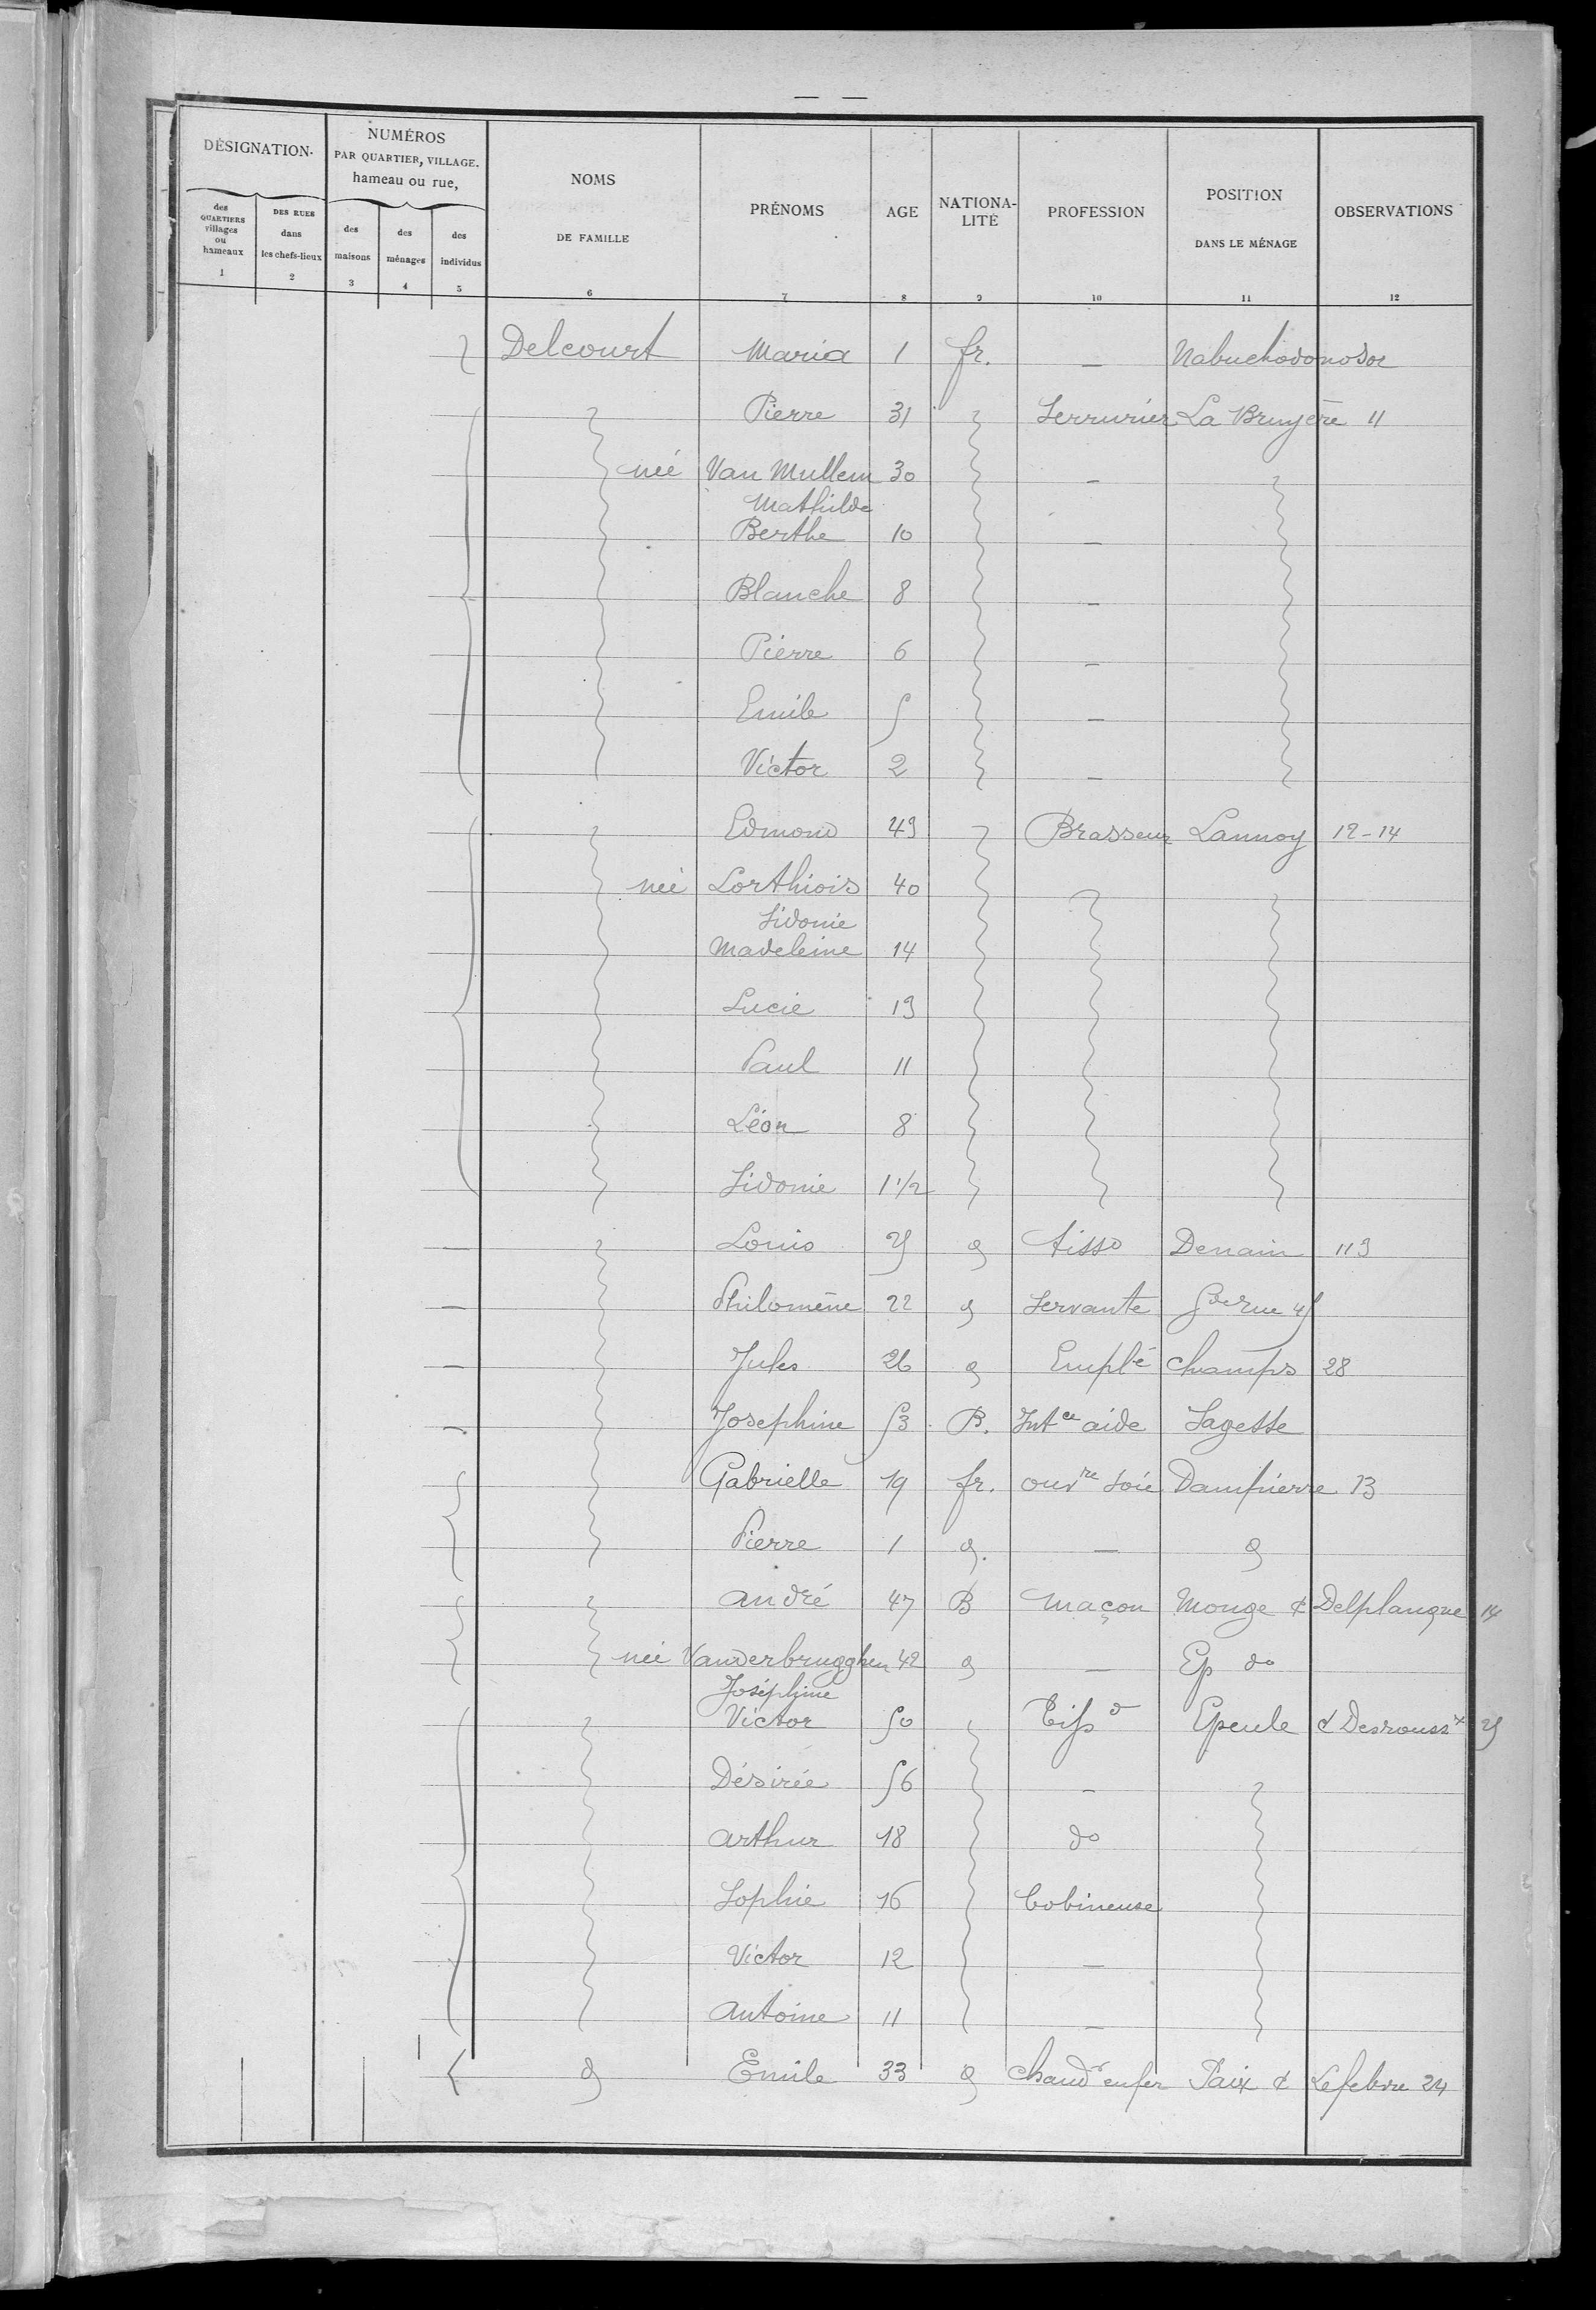 DÉSIGNATION.
NUMÉROS
PAR QUARTIER, VILLAGE.
hameau ou rue,
NOMS
DE FAMILLE
PRÉNOMS
AGE
NATIONA-
LITÉ
PROFESSION
POSITION
DANS LE MÉNAGE
OBSERVATIONS
des
QUARTIERS
villages
ou
hameaux
DES RUES
dans
les chefs-lieux
des
maisons
des
ménages
des
individus
1 2 3 4 5 6 7 8 9 10 11 12
Delcourt Maria 1 fr. — Nabuchodonosor
Pierre 31 Serrurier La Bruyère 11
née Van Mullem 30 —
Mathilde
Berthe 10 —
Blanche 8 —
Pierre 6 —
Emile 5 —
Victor 2 —
Edmond 43 Brasseur Lannoy 12-14
née Lorthiois 40
Sidonie
Madeleine 14
Lucie 13
Paul 11
Léon 8
Sidonie 1 1/2
— Louis 25 d tissd Denain 113
— Philomène 22 d servante Gde rue 45
— Jules 26 d Emplé champs 28
— Josephine 53 B. Intce aide Sagesse
Gabrielle 19 fr. ouvre soie Dampierre 13
Pierre 1 d. — d
André 47 B maçon Monge & Delplanque 14
née Vanderbrugghen 42 d — Ep do
Joséphine
Victor 50 Tissd Epeule & Desroussx 25
Désirée 56 —
Arthur 18 do
Sophie 16 bobineuse
Victor 12 —
Antoine 11 —
d Emile 33 d chaudr en fer Paix & Lefebvre 24